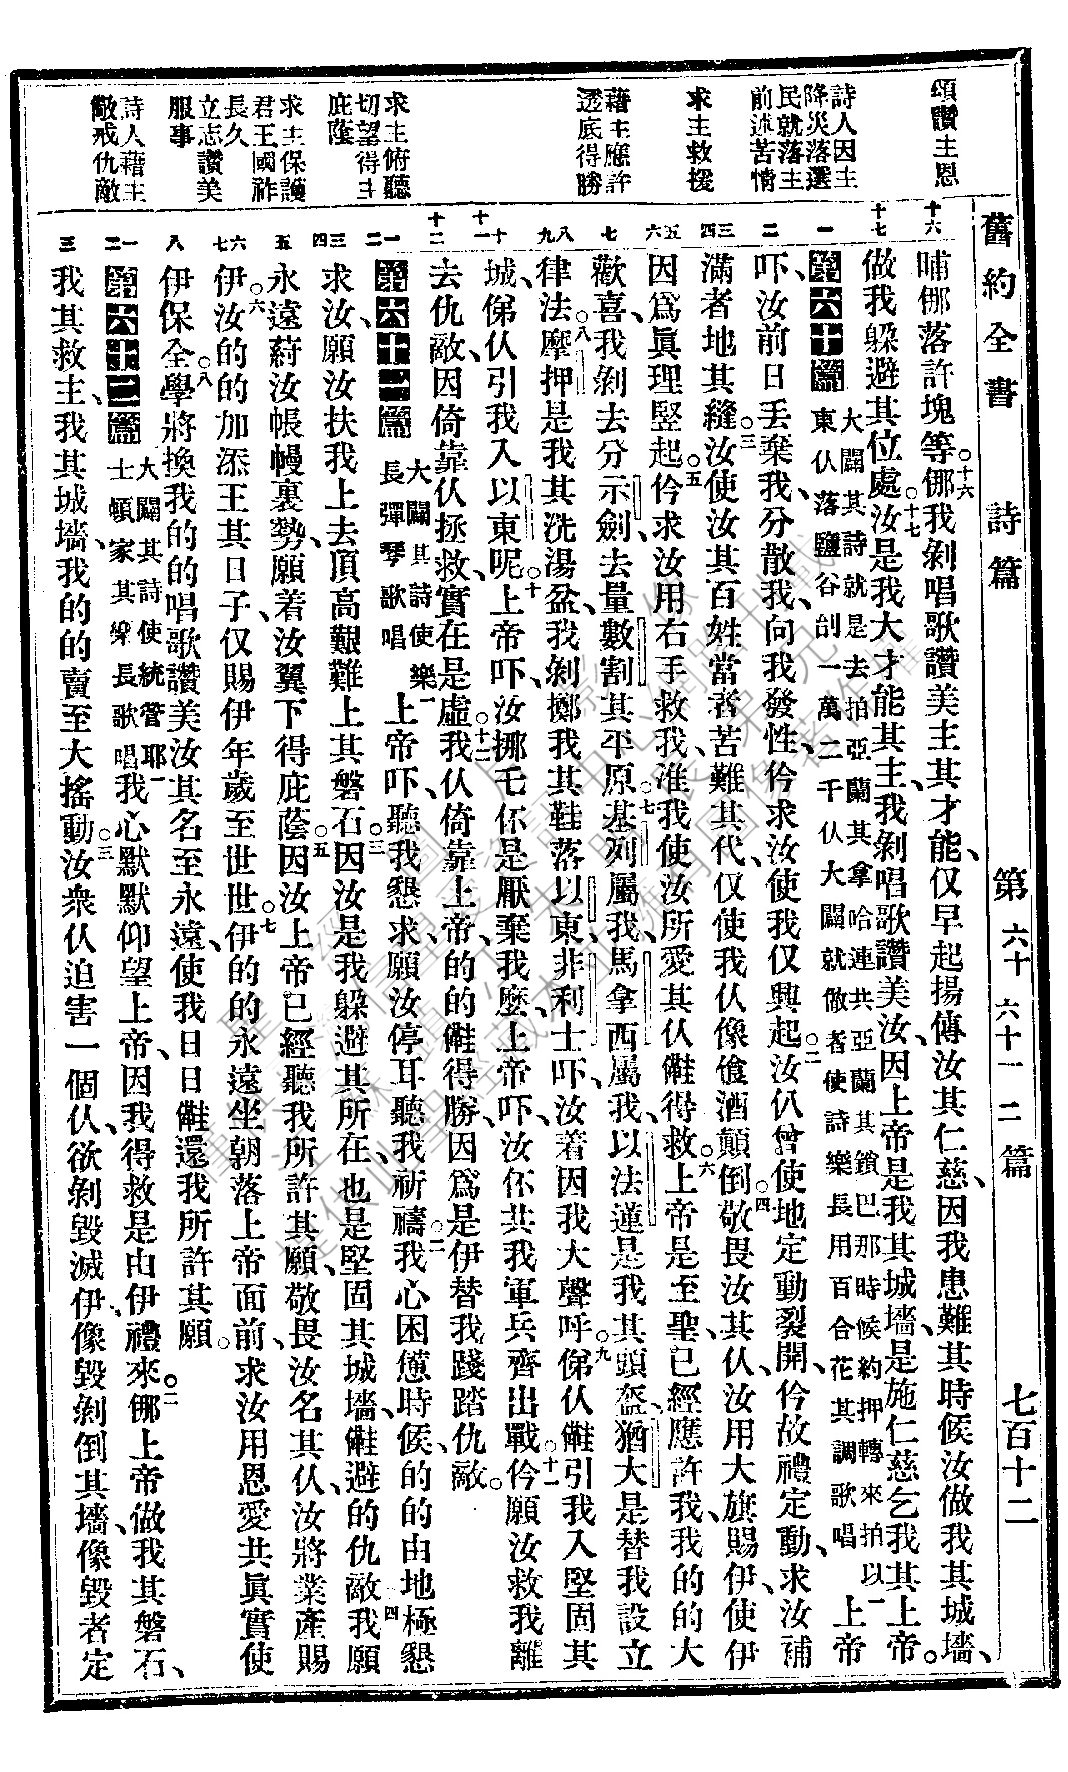 舊約全書 詩篇 第六十 六十一 二篇 七百十二
頌讚主恩
詩人因主
降災落選
民就落主
前述苦情
求主救援
藉主應許
透底得勝
求主俯聽
切望得主
庇蔭
求主保護
君王國祚
長久
立志讚美
服事
詩人藉主
儆戒仇敵
十六 哺㑚落許塊等㑚我剝唱歌讚美主其才能、仅早起揚傳汝其仁慈、因我患難其時候汝做我其城墻、
十七 做我躲避其位處。十七汝是我大才能其主、我剝唱歌讚美汝、因上帝是我其城墻、是施仁慈乞我其上帝。
第六十篇 大闢其詩就是去拍亞蘭其拿哈連共亞蘭其鎖巴那時候約押轉來拍以
東仈落鹽谷刣一萬二千仈大闢就儆者使詩樂長用百合花其調歌唱 一上帝
二 吓、汝前日丢棄我、分散我、向我發性、仱求汝使我仅興起。二汝仈曾使地定動裂開、仱故禮定動、求汝補
三四 滿者地其縫。三汝使汝其百姓當者苦難其代、仅使我仈像傖酒顛倒。四敬畏汝其仈、汝用大旗賜伊、使伊
五六 因爲眞理竪起。五仱求汝用右手救我、准我、使汝所愛其仈𠆧得救。六上帝是至聖、已經應許我、我的的大
七 歡喜、我剝去分示劍、去量數割其平原。七基列屬我、馬拿西屬我、以法蓮是我其頭盔、猶大是替我設立
八九 律法。八摩押是我其洗湯盆、我剝擲我其鞋落以東、非利士吓、汝着因我大聲呼。九俤仈𠆧引我入堅固其
十十一 城、俤仈引我入以東呢。十上帝吓、汝挪乇伓是厭棄我麽、上帝吓、汝伓共我軍兵齊出戰。十一仱願汝救我離
十二 去仇敵、因倚靠仈拯救實在是虛。十二我仈倚靠上帝、的的𠆧得勝、因爲是伊替我踐踏仇敵。
第六十一篇 大闢其詩使樂
長彈琴歌唱 一上帝吓、聽我懇求、願汝停耳聽我祈禱。二我心困憊時候、的的由地極懇
三四 求汝、願汝扶我上去頂高艱難上其磐石。三因汝是我躲避其所在、也是堅固其城墻、𠆧避的仇敵。四我願
五 永遠蒔汝帳幔裏勢、願着汝翼下得庇蔭。五因汝上帝已經聽我所許其願、敬畏汝名其仈、汝將業產賜
六七 伊。六汝的的加添王其日子、仅賜伊年歲至世世。七伊的的永遠坐朝落上帝面前、求汝用恩愛共眞實、使
八 伊保全。八學將換我的的唱歌讚美汝其名至永遠、使我日日𠆧還我所許其願。
第六十二篇 大闢其詩使統管耶
士頓家其樂長歌唱 一我心默默仰望上帝、因我得救是由伊禮來。二㑚上帝做我其磐石、
三 我其救主、我其城墻、我的的賣至大搖動。三汝衆仈迫害一個仈、欲剝毀滅伊、像毀剝倒其墻、像毀者定